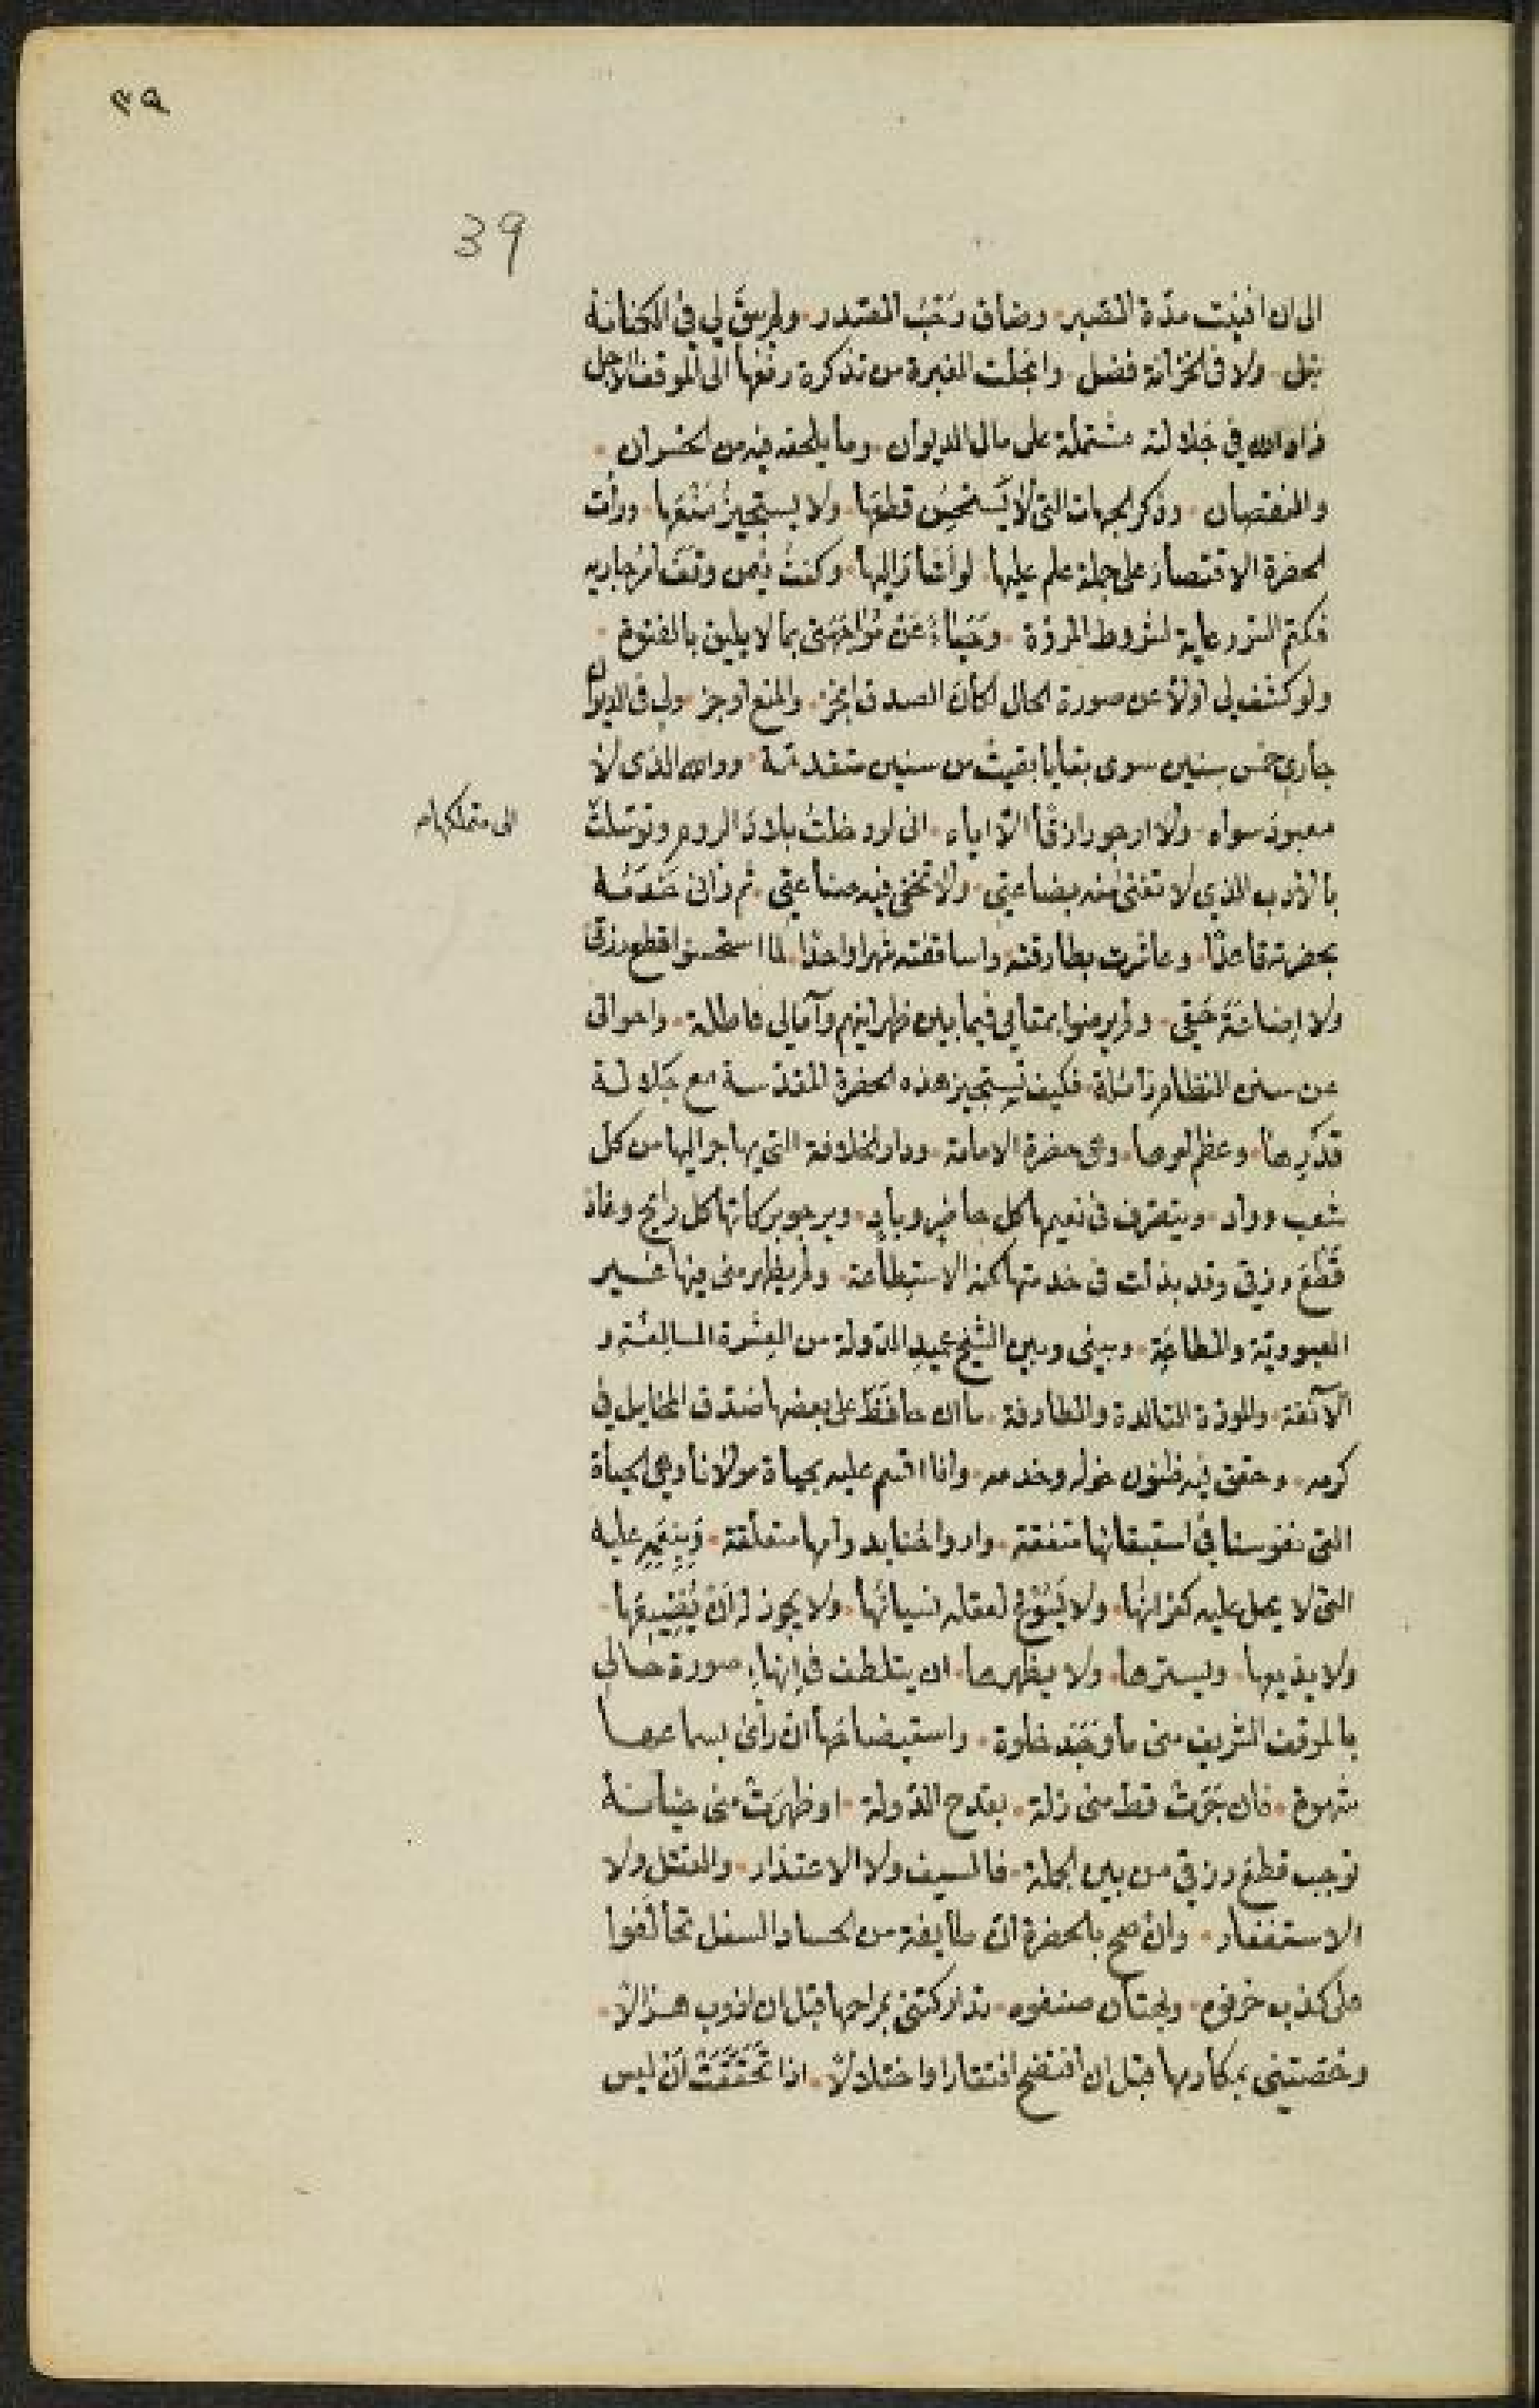 ٣٩
39
الى ان افنيت مدّة الصبر. وضاق رَحْبُ المقتدر. ولم يبقَ لي في الكنانة
نبل. ولا في الخزانة فضل. وانجلت الغبرة من تذكرة رفعها الى الموقف الاجل
زاد الله في جلالته مشتملة على مال الديوان. وما يلحقه فيه من الخسران.
والنقصان. وذكر الجهات التي لا يستحسن قطعها. ولا يستجيز مَنْعَها. ورأت
الحضرة الاقتصار على جملة علم عليها. لو أشار اليها. وكنت فيمن وقف امر جاريه
فكتم السر رعاية لشروط المروّة. وحَياءً عَنْ مُواجَهتى بما لا يليق بالفتوة.
ولو كشف لى اولاً عن صورة الحال لكان الصدق انجز. والمنع اوجز. ولى فى الديوان
جارى خمس سنين سوى بقايا بقيت من سنين متقدمة. ووالله الذى لا
معبود سواه. ولا ارجو رازقًا الّا اياه. انى لو دخلتُ بلاد الروم وتوسّلتُ
الى متملكها
بالادب الذي لا تفنى منه بضاعتى. ولا تخفى فيه صناعتى. ثم زانى خدمة
بحضرته قاعدًا. وعاشرت بطارقته واساقفته شهرا واحدًا. لما استحسنوا قطع رزقى
ولا اضاعَةَ حَقّى. ولم يرضوا بمقامى فيما بين ظهرانيهم وآمالى عاطلة. واحوالى
عن سنن النظام زائلة. فكيف تستجيز هذه الحضرة المقدّسة مع جلالة
قدرها. وعظم امرها. وهى حضرة الامامة. ودار الخلافة التى يهاجر اليها من كل
شعب وواد. ويتصرف فى نعيمها كل حاضر وباد. ويرجو بركاتها كل رائح وغاد
قَطْعَ رزقى وقد بذلت فى خدمتها كنه الاستطاعة. ولم يظهر منى فيها غير
العبوديّة والطاعة. وبينى وبين الشيخ عميد الدّولة من العِشرة السالفة و
الآنفة. والمودّة التالدة والطارفة. ما ان حافَظَ على بعضها صَدَق المخايل فى
كرمه. وحقق فيه ظنون خوله وخدمه. وانا اقسم عليه بحياة مولانا وهى الحياة
التى نفوسنا فى استبقائها متفقة. وارواحنا بدوامها متعلّقة. وَبِنِعَمِهِ عليه
التى لا يحل عليه كفرانها. ولا يَسُوغ لعقله نسيانُها. ولا يجوز له أنْ يُضَيِّعَها.
ولا يذيعها. ويسترها. ولا يظهرها. ان يتلطف فى إنهاءِ صورة حالى
بالموقف الشريف متى ما وَجَد خلوة. واستيضاحها ان رأى لسماعها
شهوة. فان جَرَتْ قط منى زلة. بقدح الدّولة. او ظهرَتْ منى خيانة
توجب قطع رزقى من بين الجملة. فالسيف ولا الاعتذار. والقتل ولا
الاستغفار. وان صح بالحضرة انّ طايفة من الحساد السفل تحالفوا
على كذب خرفوه. وبهتان صنفوه. تداركتنى بمراحمها قبل ان اذوب هزالاً.
وخصتنى بمكارمها قبل ان افتضح افتقارا واختلالاً. اذا تَحَقَّقَتْ اَنْ ليس